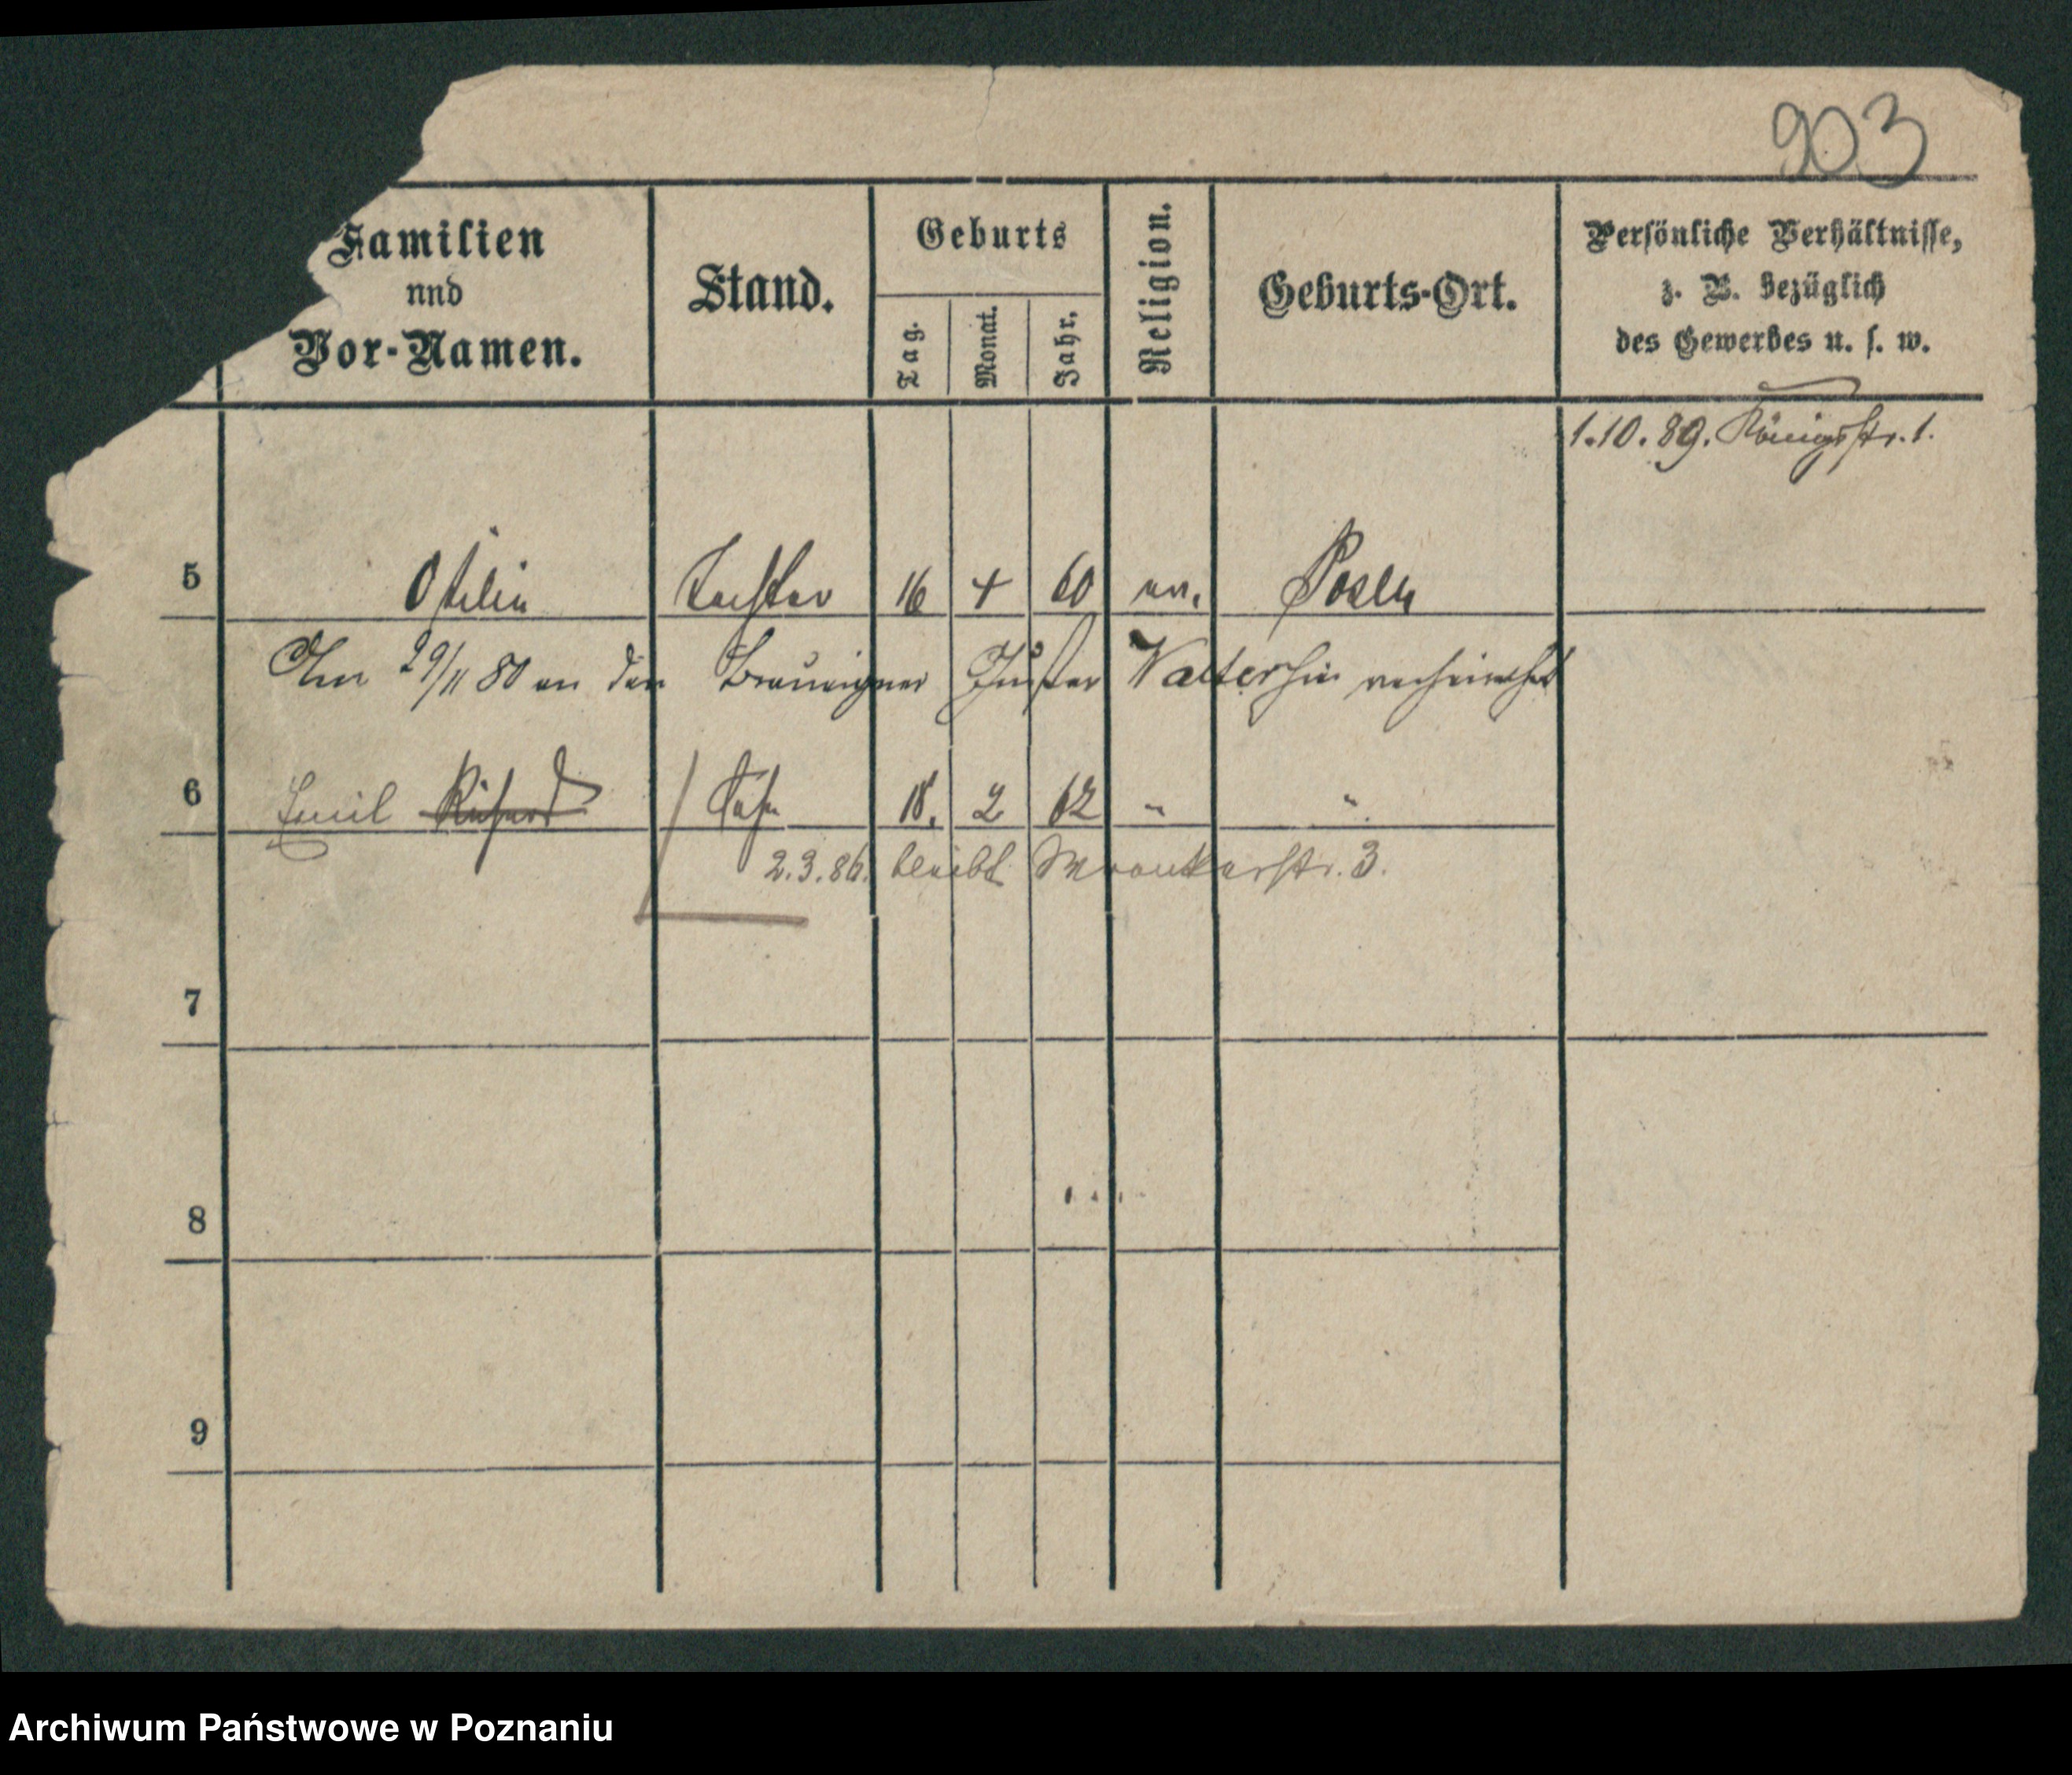 903
Familien
nnd
Vor-Namen.
Stand.
Geburts
Tag.
Monat.
Jahr.
Religion.
Geburts-Ort.
Persönliche Verhältnisse,
z. B. bezüglich
des Gewerbes u. s. w.
1.10.89. Königsstr. 1.
5 Otilie Tochter 16 4 60 ev. Posen
Am 29/11 80 an den Gustav verheirathet
6 Emil Richard Sohn 18. 2 62 " "
2.3.86. bleibt Wronkerstr. 3.
7
8
9
Archiwum Państwowe w Poznaniu